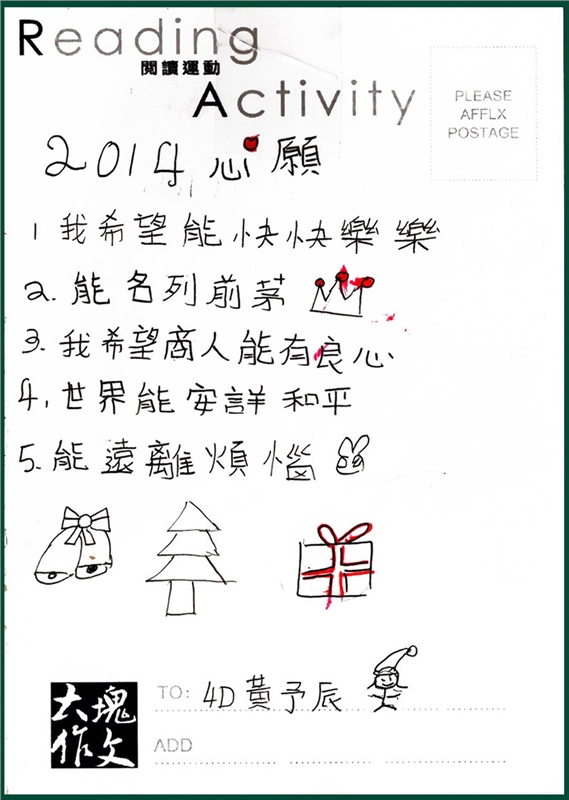 Reading
閱讀運動
Activity
PLEASE
AFFLX
POSTAGE
2014 心願
1 我希望能快快樂樂
2. 能名列前茅
3. 我希望商人能有良心
4, 世界能安詳和平
5. 能遠離煩惱
大塊
作文
TO: 4D 黃予辰
ADD